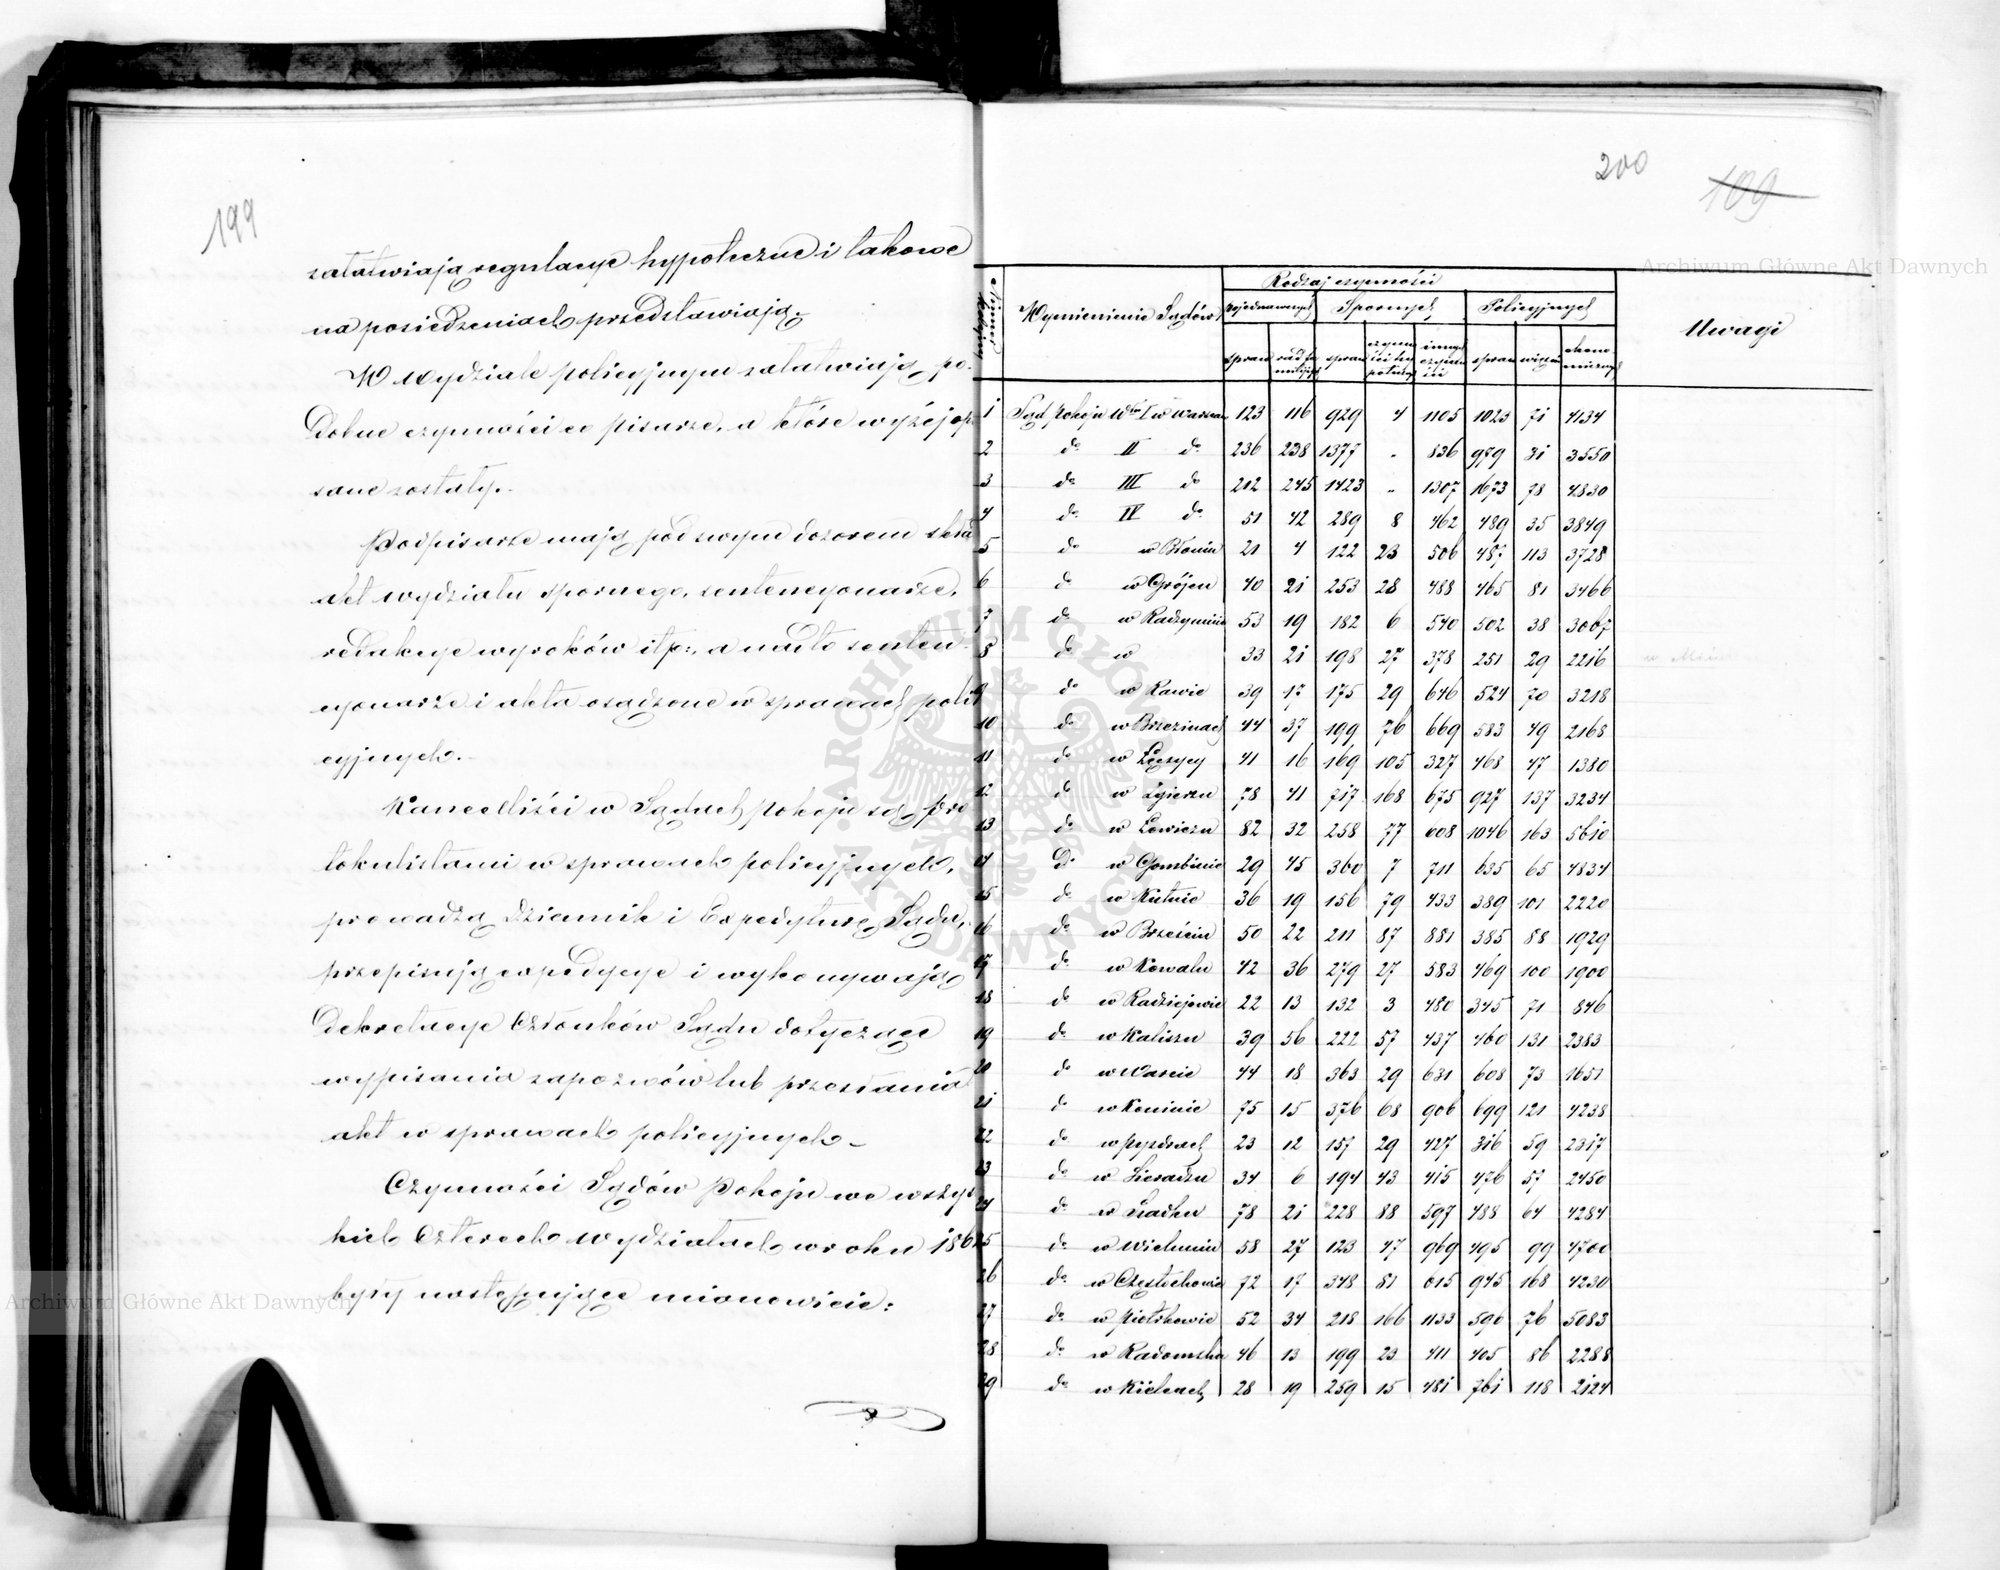 199
załatwiają regulacye hypoteczne i takowe
na posiedzeniach przedstawiają.
W wydziale policyjnym załatwiają po-
dobne czynności co pisarze, a które wyżej opi
sane zostały.
Podpisarze mają pod swym dozorem skład
akt wydziału spornego, sentencyonarze,
redakcye wyroków itp:, a nadto senten-
cyonarze i akta osądzone w sprawach poli
cyjnych.
Kancelliści w Sądach pokoju są pro
tokulistami w sprawach policyjnych,
prowadzą Dziennik i Expedyturę Sądu,
przepisują expedycye i wykonywają
Dekretacye Członków Sądu dotyczące
wypisania zapozwów lub przesłania
akt w sprawach policyjnych.
Czynności Sądów Pokoju we wszyst
kich Czterech wydziałach w roku 186
były następujące mianowicie:
200
109
Numer kolejny | Wymienienie Sądów | Rodzaj czynności | Uwagi
pojednawczych | Spornych | Policyjnych
spraw | rad fa milijnych | spraw | czynno ści hy potecz | innych czynno ści | spraw | więzień | ekono micznych
1 Sąd Pokoju Włu I w Warszaw 123 116 929 4 1105 1023 71 4134
2 do II do 236 238 1377 - 836 979 31 3550
3 do III do 212 245 1423 - 1307 1673 78 4830
4 do IV do 51 42 289 8 462 489 35 3849
5 do w Błoniu 21 4 122 23 506 487 113 3728
6 do w Grójcu 40 21 253 28 488 465 81 3466
7 do w Radzyminie 53 19 182 6 540 502 38 3067
8 do w 33 21 198 27 378 251 29 2216
9 do w Rawie 39 17 175 29 646 524 70 3218
10 do w Brzezinach 44 37 199 76 669 583 49 2168
11 do w Łęczycy 41 16 169 105 327 468 47 1380
12 do w Zgierzu 78 41 717 168 675 927 137 3234
13 do w Łowiczu 82 32 258 77 608 1046 163 5610
14 Do w Gombinie 29 45 360 7 711 635 65 4834
15 do w Kutnie 36 19 156 79 433 389 101 2220
16 do w Brześciu 50 22 211 87 881 385 88 1929
17 do w Kowalu 42 36 279 27 583 469 100 1900
18 do w Radziejowie 22 13 132 3 480 345 71 846
19 do w Kaliszu 39 56 222 57 437 460 131 2383
20 do w Warcie 44 18 363 29 631 608 73 1651
21 do w Koninie 75 15 376 68 906 699 121 4238
22 do w Pyzdrach 23 12 157 29 427 316 59 2317
23 do w Sieradzu 34 6 194 43 415 476 57 2450
24 do w Szadku 78 21 228 88 597 488 64 4284
25 do w Wieluniu 58 27 123 47 969 495 99 4700
26 do w Częstochowie 72 17 348 81 615 945 168 4230
27 do w Piotrkowie 52 34 218 166 1133 590 76 5083
28 do w Radomsku 46 13 199 23 411 405 86 2288
29 do w Kielcach 28 19 259 15 481 761 118 2124
Archiwum Główne Akt Dawnych
Archiwum Główne Akt Dawnych
ARCHIWUM GŁÓWNE AKT DAWNYCH